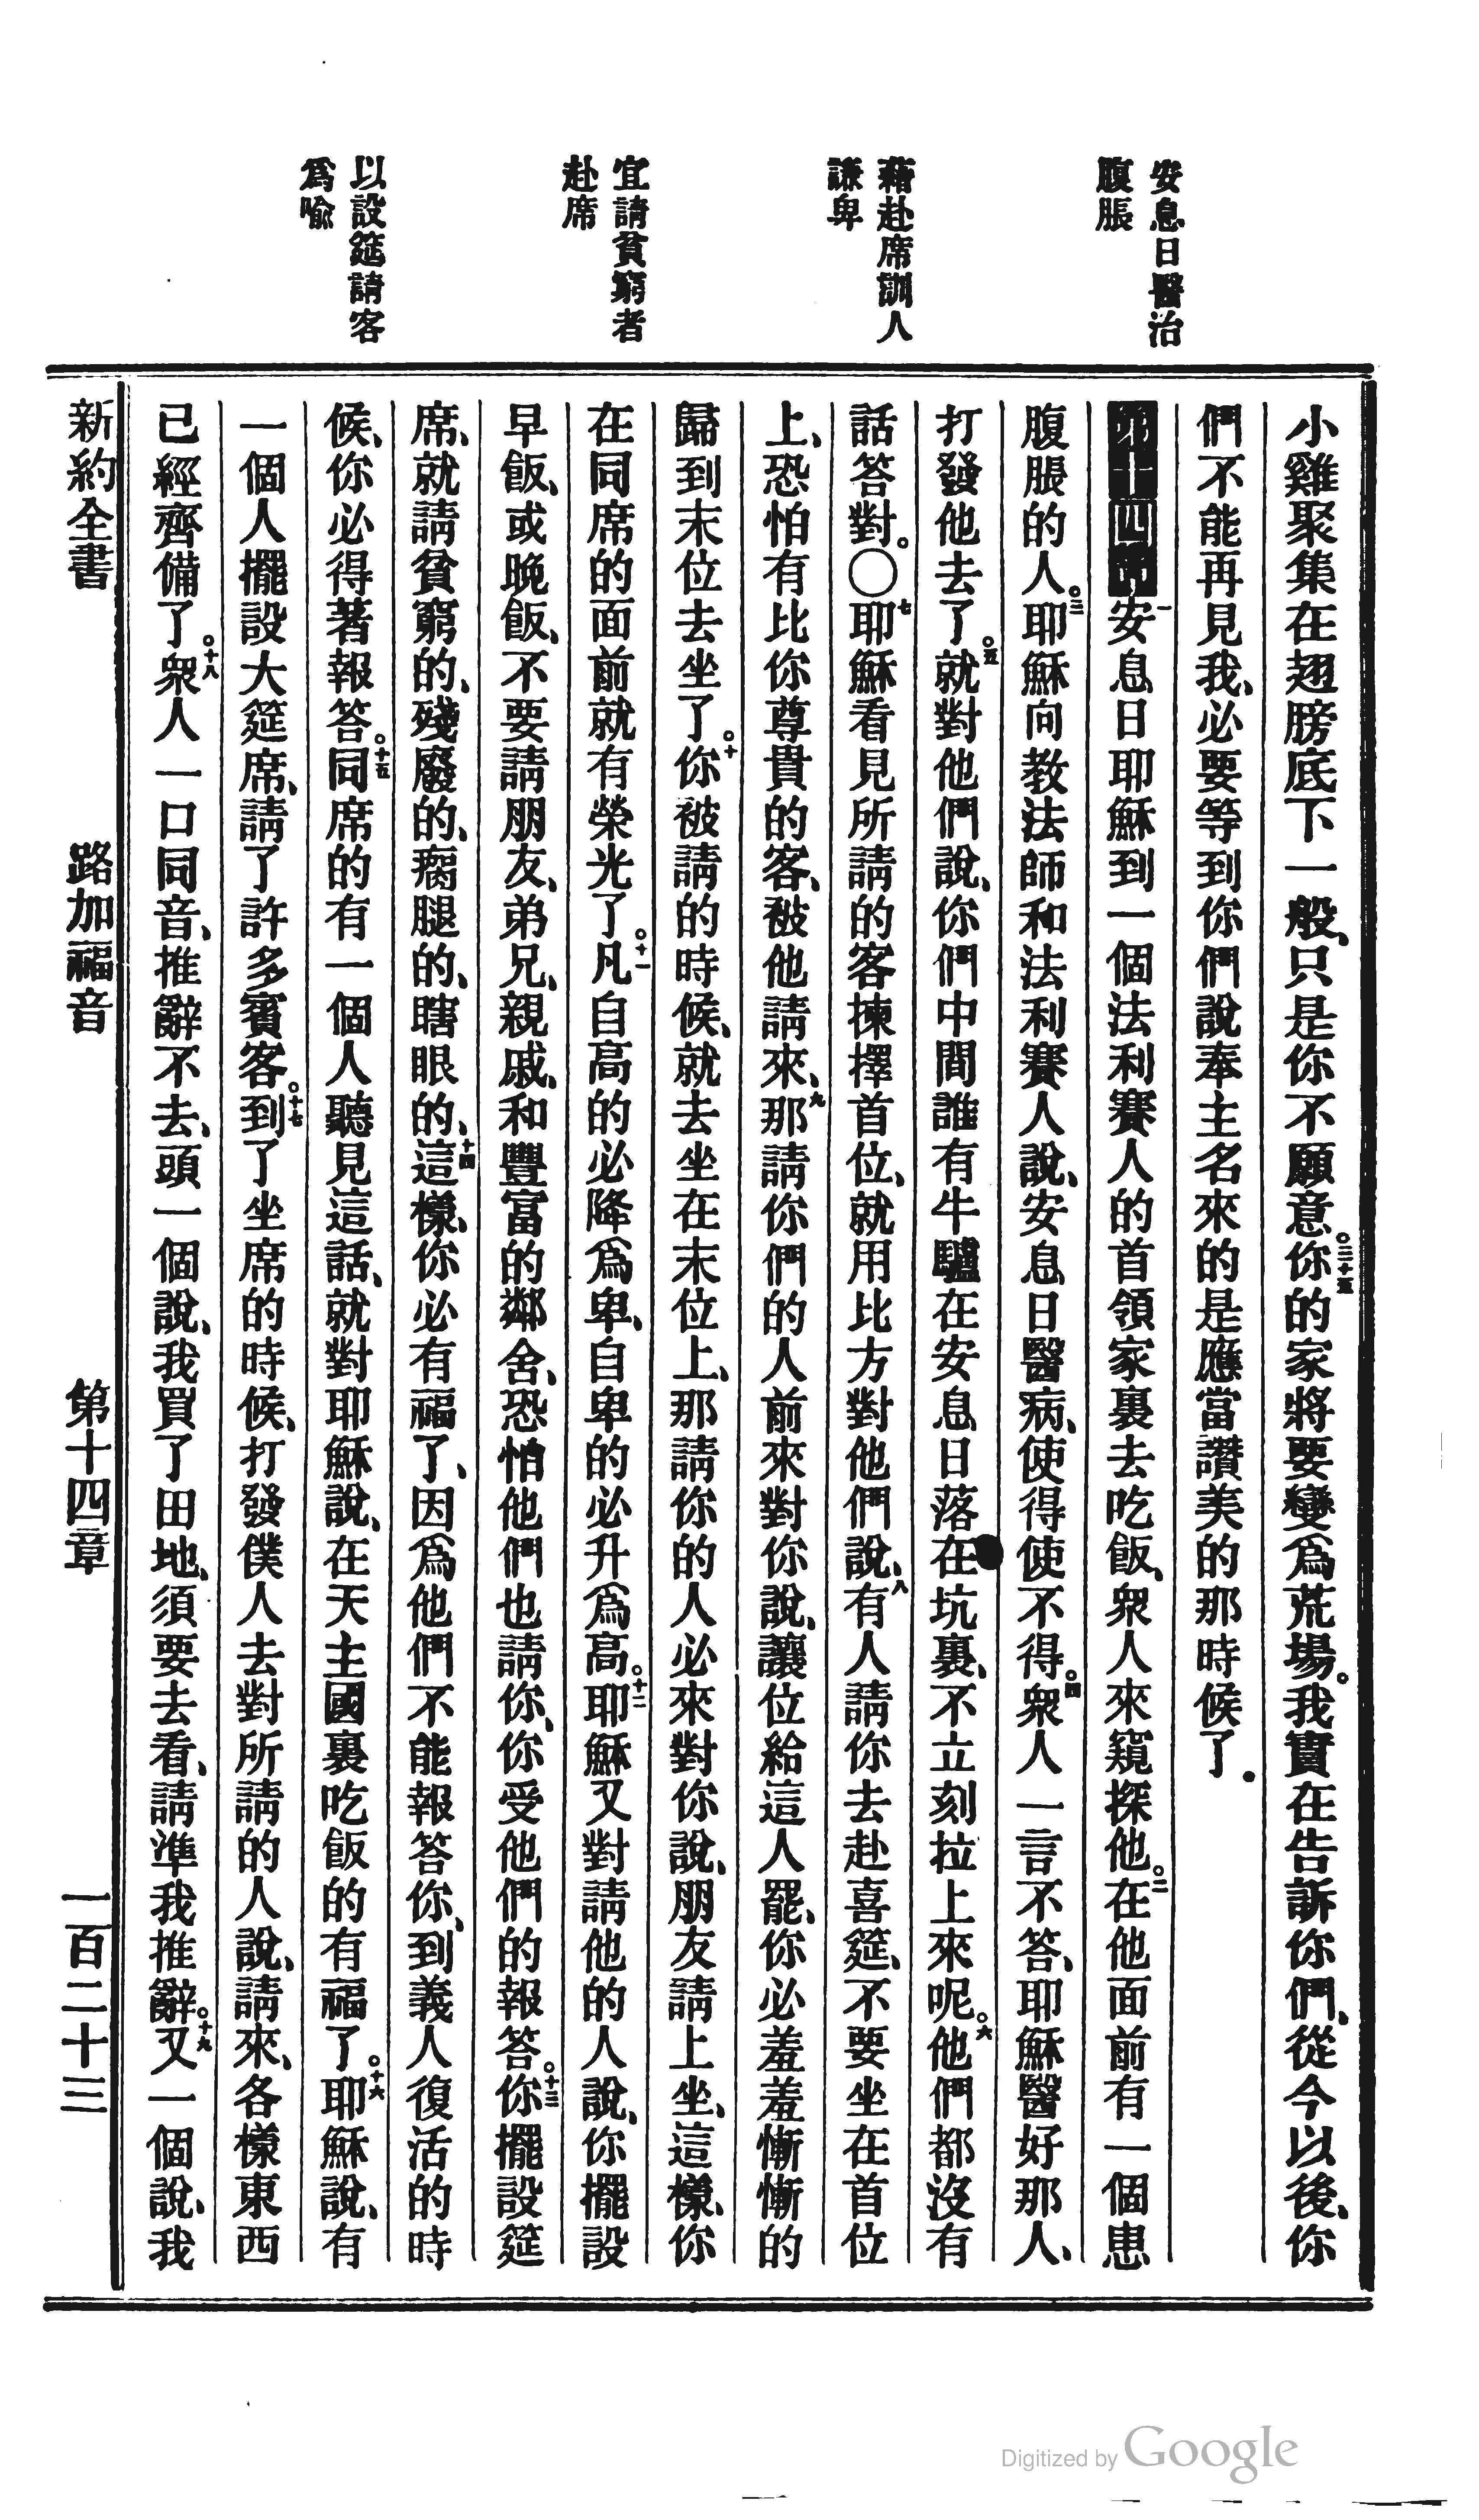 安息日醫治
腹脹
藉赴席訓人
謙卑
宜請貧窮者
赴席
以設筵請客
爲喻
小雞聚集在翅膀底下一般、只是你不願意。三十五你的家將要變爲荒場。我實在告訴你們、從今以後、你
們不能再見我、必要等到你們說奉主名來的是應當讚美的那時候了。
第十四章一安息日耶穌到一個法利賽人的首領家裏去吃飯、衆人來窺探他。二在他面前有一個患
腹脹的人。三耶穌向教法師和法利賽人說、安息日醫病、使得使不得。四衆人一言不答、耶穌醫好那人、
打發他去了。五就對他們說、你們中間誰有牛驢在安息日落在坑裏、不立刻拉上來呢。六他們都沒有
話答對。〇七耶穌看見所請的客揀擇首位、就用比方對他們說、八有人請你去赴喜筵、不要坐在首位
上、恐怕有比你尊貴的客、被他請來、九那請你們的人前來對你說、讓位給這人罷、你必羞羞慚慚的
歸到末位去坐了。十你被請的時候、就去坐在末位上、那請你的人必來對你說、朋友請上坐、這樣、你
在同席的面前就有榮光了。十一凡自高的必降爲卑、自卑的必升爲高。十二耶穌又對請他的人說、你擺設
早飯、或晚飯、不要請朋友、弟兄、親戚、和豐富的鄰舍、恐怕他們也請你、你受他們的報答。十三你擺設筵
席、就請貧窮的、殘廢的、瘸腿的、瞎眼的、十四這樣、你必有福了、因爲他們不能報答你、到義人復活的時
候、你必得著報答。十五同席的有一個人聽見這話、就對耶穌說、在天主國裏吃飯的有福了。十六耶穌說、有
一個人擺設大筵席、請了許多賓客。十七到了坐席的時候、打發僕人去對所請的人說、請來、各樣東西
已經齊備了。十八衆人一口同音、推辭不去、頭一個說、我買了田地、須要去看、請準我推辭。十九又一個說、我
新約全書 路加福音 第十四章 一百二十三
Digitized by Google